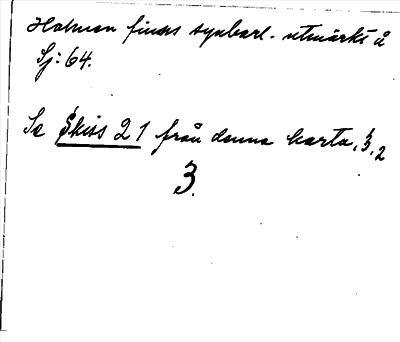 Holmen finns synbarl. utmärkt å
Sj: 64.
Se Skiss 21 från denna karta, 3,2
3.